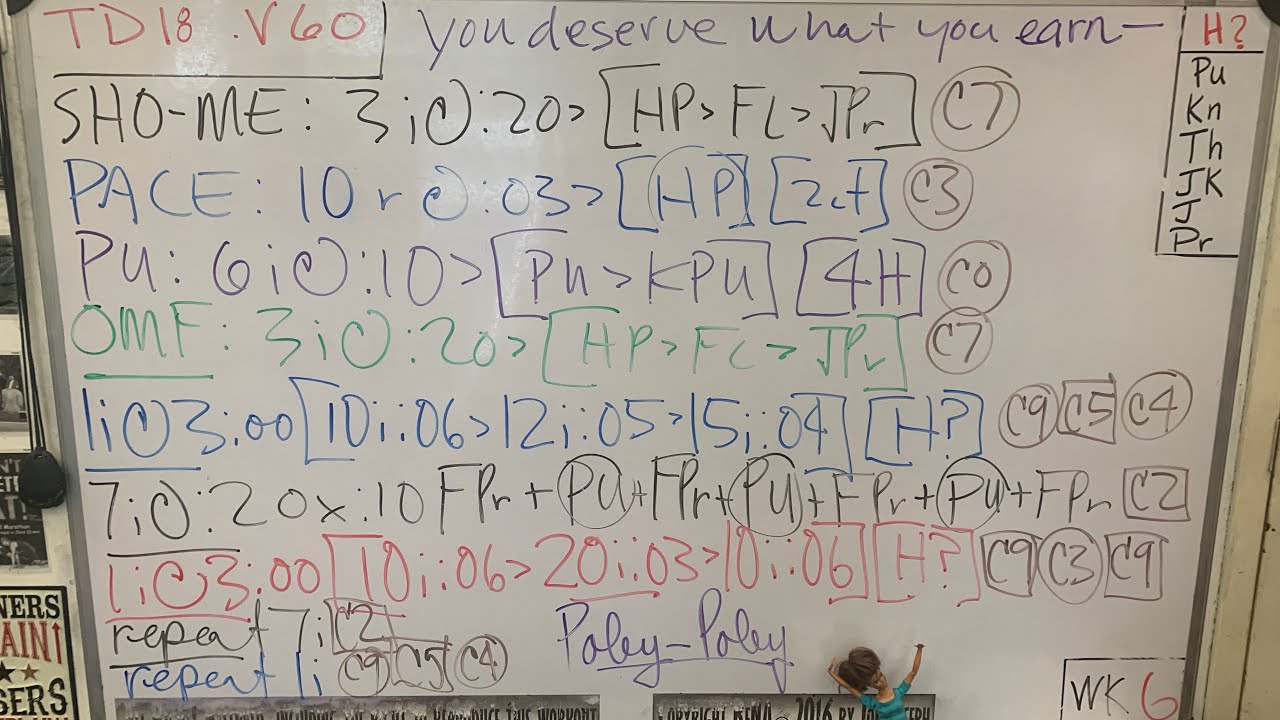 TD18 .V60
you deserve what you earn—
H?
Pu
Kn
Th
JK
J
Pr
SHO-ME: 3i@:20> [HP>FL>JPr] C7
PACE: 10r@:03> [HP] [2ct] C3
PU: 6i@:10> [PU>KPU] [4H] C0
OMF: 3i@:20> [HP>FL>JPr] C7
1i@3:00 [10i:06>12i:05>15i:04] [H?] C9 C5 C4
7i@:20x:10 FPr+PU+FPr+PU+FPr+PU+FPr C2
1i@3:00 [10i:06>20i:03>10i:06] [H?] C9 C3 C9
repeat 7i C2
repeat 1i C9 C5 C4
Poley-Poley
WK 6